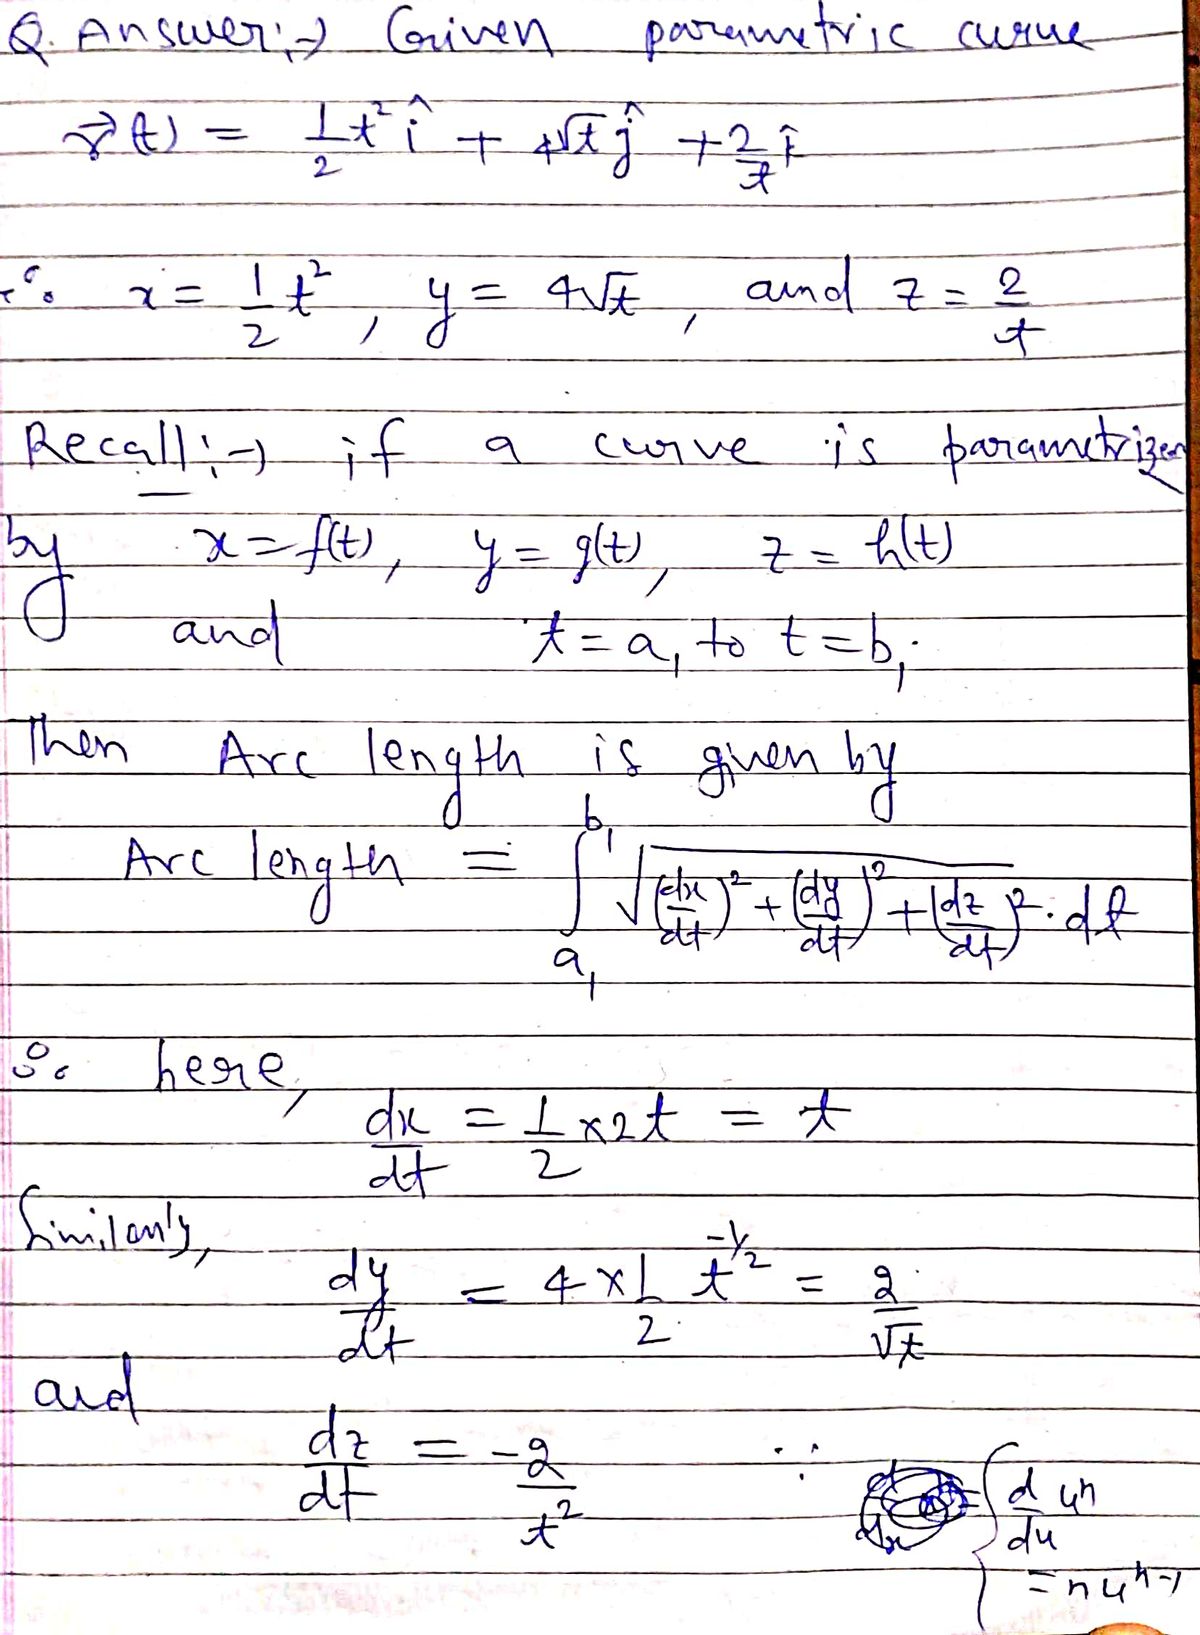 Q. Answer:→ Given parametric curve
r⃗(t) = 1/2 t² î + 4√t ĵ + 2/t k̂
∴ x = 1/2 t², y = 4√t, and z = 2/t
Recall:→ if a curve is parametrized
by x = f(t), y = g(t), z = h(t)
and t = a₁ to t = b₁.
Then Arc length is given by
Arc length = ∫_{a₁}^{b₁} √((dx/dt)² + (dy/dt)² + (dz/dt)²) · dt
∴ here,
dx/dt = 1/2 × 2t = t
Similarly,
dy/dt = 4 × 1/2 t^{-1/2} = 2/√t
and
dz/dt = -2/t² ∵ { d/du uⁿ
= n uⁿ⁻¹